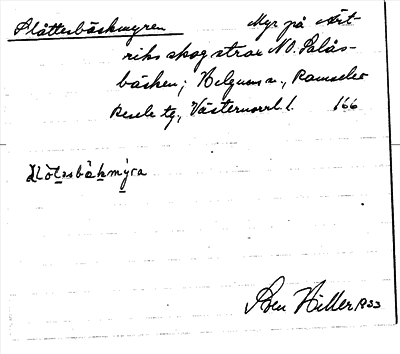 Slåttesbäckmyren Myr på Art-
riks skog strax NO. Salås-
bäcken; Helgums s., Ramsele
Resele tg., Västernorrl. l. 166
Sven Hiller 1933